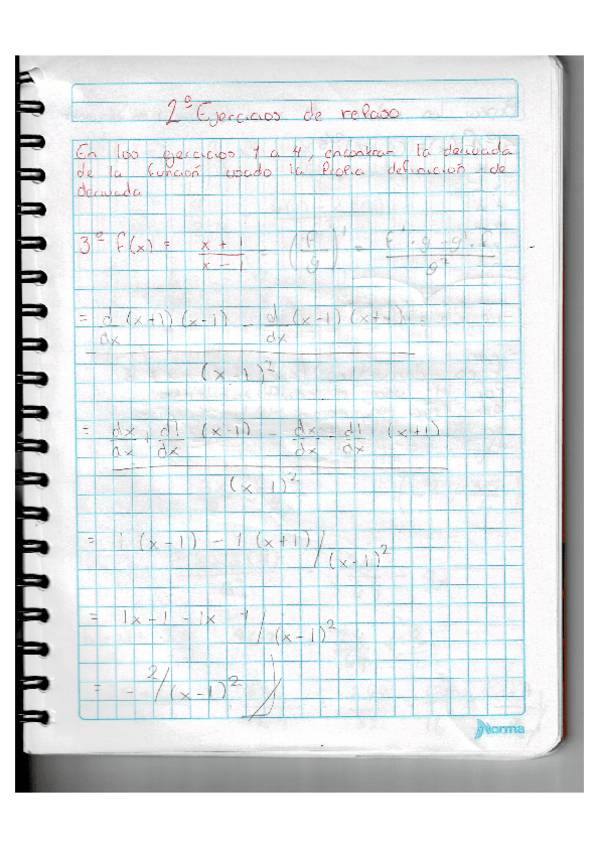 2º Ejercicios de repaso
En los ejercicios 1 a 4, encontrar la derivada
de la función usado la propia definición de
derivada
3º f(x) = x + 1 / x - 1 = (f/g)' = f' · g - g' · f / g²
= d/dx (x+1)(x-1) - d/dx (x-1)(x+1)
(x-1)²
= dx/dx + d1/dx (x-1) - dx/dx - d1/dx (x+1)
(x-1)²
= 1 (x-1) - 1 (x+1) / (x-1)²
= 1x - 1 - 1x - 1 / (x-1)²
= - 2/(x-1)²
Norma